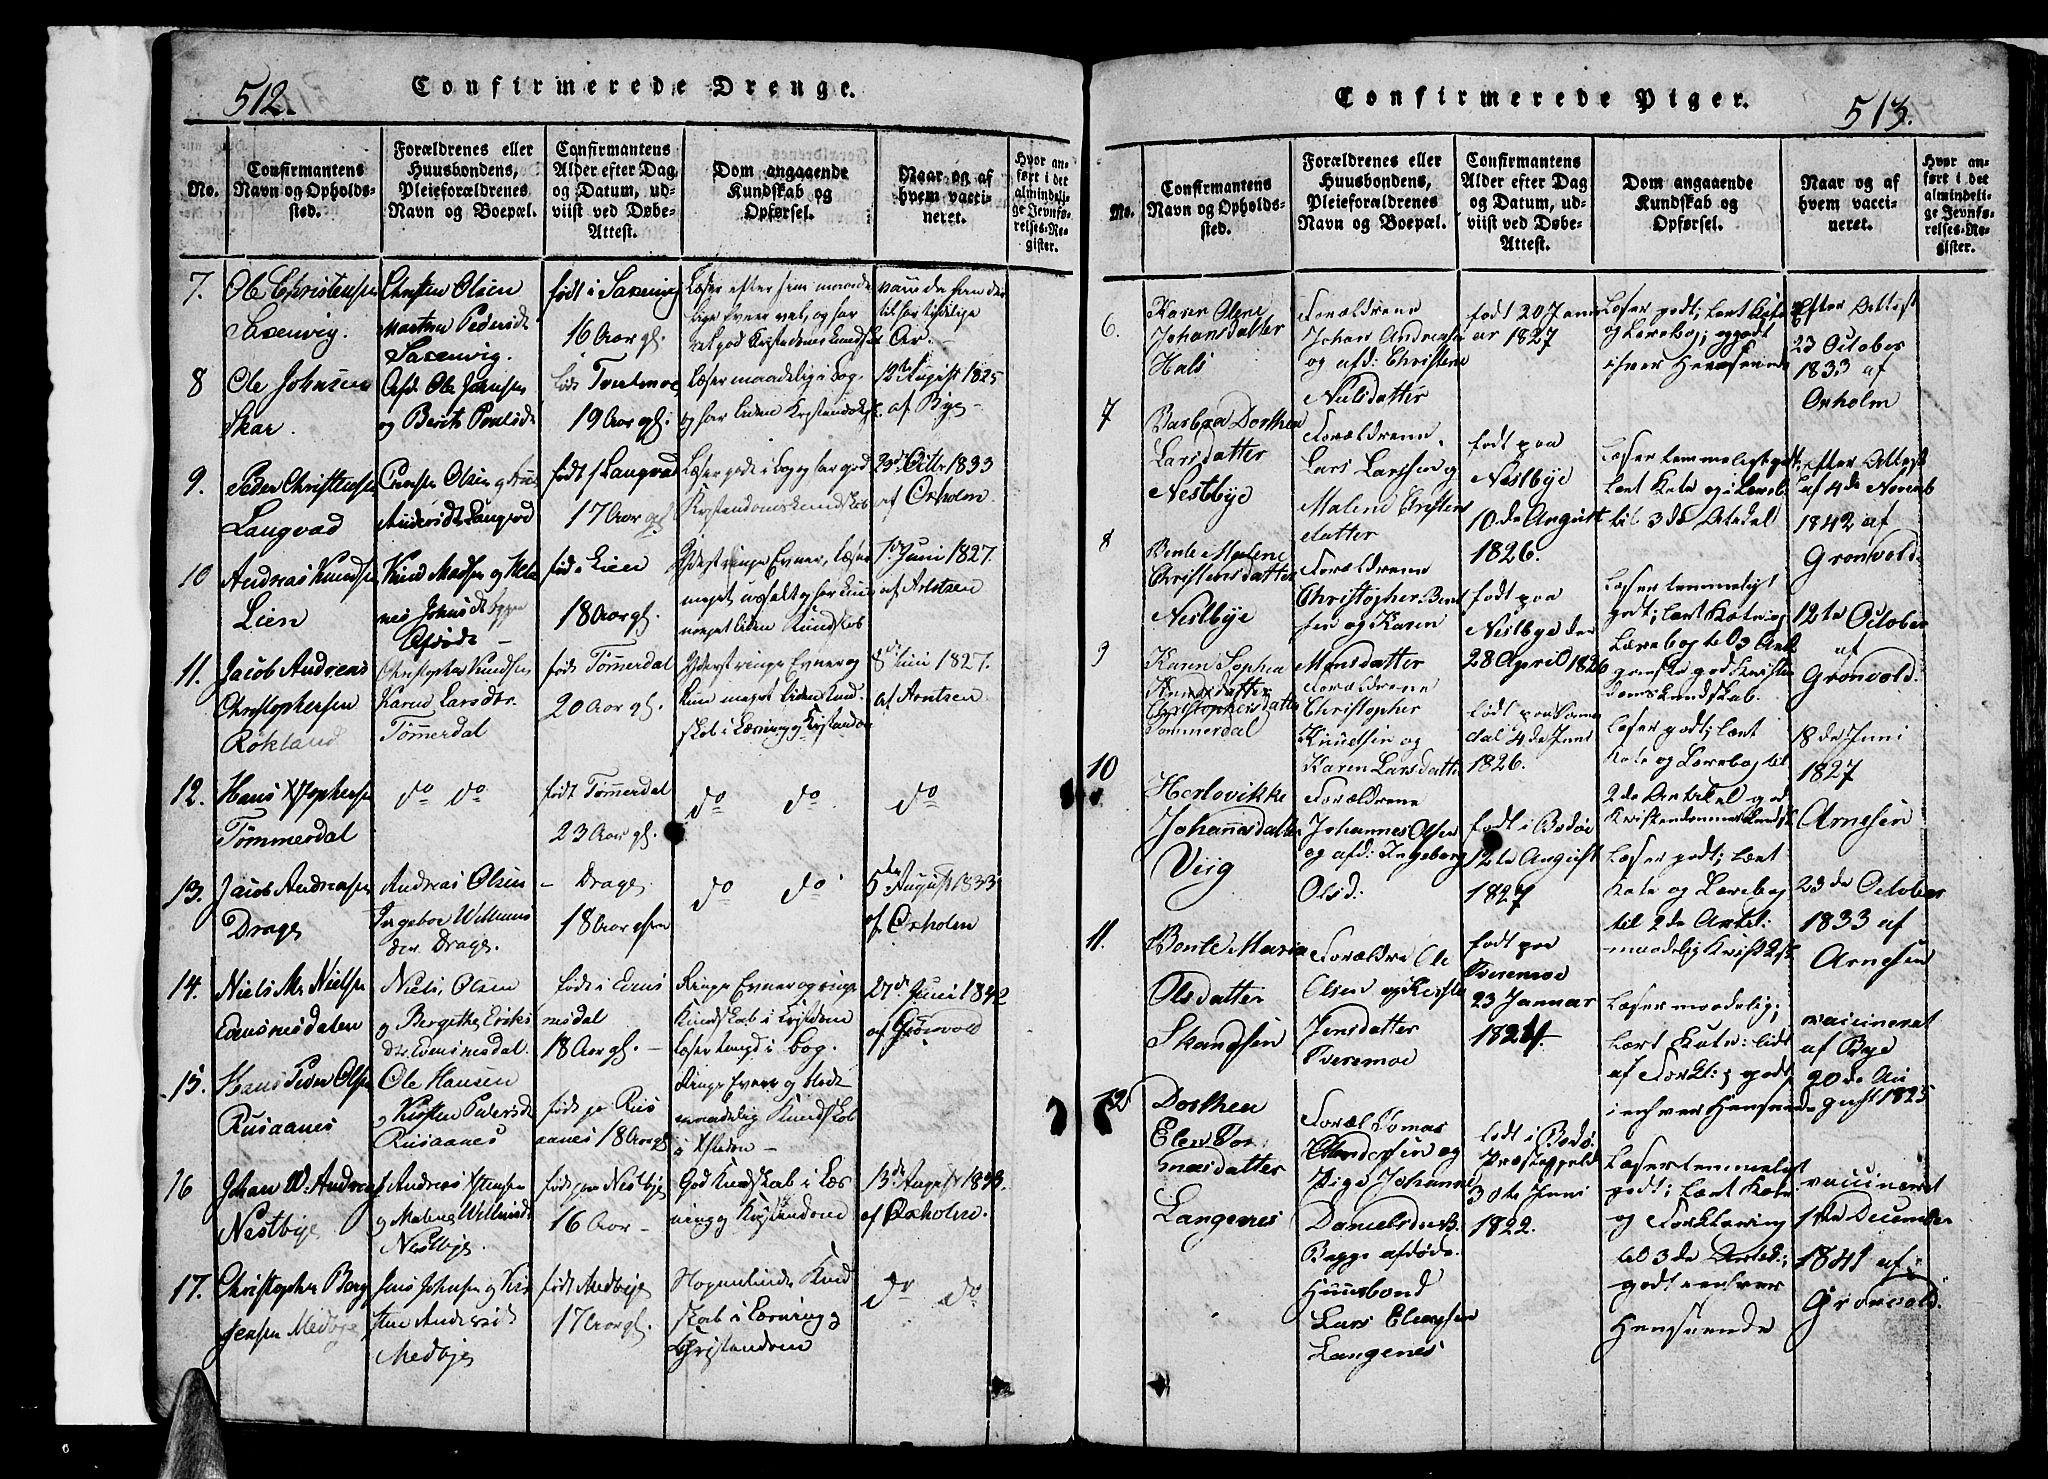 512.
Confirmerede Drenge.
No.
Confirmantens
Navn og Opholds-
sted.
Forældrenes eller
Huusbondens,
Pleieforældrenes
Navn og Boepæl.
Confirmantens
Alder efter Dag
og Datum, ud-
viist ved Døbe-
Attest.
Dom angaaende
Kundskab og
Opførsel.
Naar og af
hvem vacci-
neret.
Hvor an-
ført i det
almindeli-
ge Jevnfø-
relses-Re-
gister.
7.
Ole Christensen
Saxenvig.
Christen Olsen
Saxenvig.
født i Saxenvig
16 Aar gl.
Læser efter sine maade
lige Evner vel, og har
8
Ole Johnsen
Skar.
Afd. Ole Johnsen
og Berit Poulsdr
født Tverdmoe
19 Aar gl.
Læser maadelig i Bog
og har liden
12te August 1825
af Bye
9.
Peder Christensen
Langvad
født i Langvad
17 Aar gl
Læser godt i Bog og har god
Kristendomskundskab
23de Octbr 1833
af Oxholm
10
Andreas Knudsen
Lien
Knud Madsen og
født i Lien
18 Aar gl.
Yderst ringe Evner, læser
meget liden Kundskab
1ste Juni 1827.
af Arntsen
11.
Jacob Andreas
Christophersen
Røkland
Christopher Knudsen
Karen Larsdtr
Tømerdal
født Tømerdal
20 Aar gl.
Yderst ringe Evner og
kun meget liden Kund
skab i Læsning og Kristendom
8de Juni 1827.
af Arntsen
12.
Hans Xstophersen
Tømmerdal
do do
født Tømerdal
23 Aar gl.
do do
do
13.
Jacob Andreasen
Drage
Andreas Olsen
Ingebor Willums
dtr. Drage.
- Drage
18 Aar
do do
5te August 1833
af Oxholm
14.
Niels M. Nielsen
Evensnesdalen
Niels Olsen
og Bergethe Eriks
dtr. Evensnesdal.
født i Evens
nesdal
18 Aar gl.
Ringe Evner og ringe
Kundskab i Kristdom
Læser langs i bog.
27de Juni 1842
af Grønvold
15.
Hans Peder Olsen
Rusaanes
Ole Hansen
og Kirsten Pedersdr
Rusaanes
født på Rus
aanes 18 Aar gl
Ringe Evner og blot
maadelig Kundskab
i Xstedom
16
Johan W. Andreas
Nestbye
Andreas Xstensen
og Malene Willumsdr
Nestbye.
født paa Nestbye
16 Aar
God Kundskab i Læs
ning og Kristendom
13de August 1833.
af Oxholm.
17.
Christopher Berg
Jensen Medbye
Jens Johnsen og Kir
stine Andersdr
Medbye
født Medbye
17 Aar gl.
Kund
skab i Læsning og
Christendom
do do
513.
Confirmerede Piger.
No.
Confirmantens
Navn og Opholds-
sted.
Forældrenes eller
Huusbondens,
Pleieforældrenes
Navn og Boepæl.
Confirmantens
Alder efter Dag
og Datum, ud-
viist ved Døbe-
Attest.
Dom angaaende
Kundskab og
Opførsel.
Naar og af
hvem vacci-
neret.
Hvor an-
ført i det
almindeli-
ge Jevnfø-
relses-Re-
gister.
6.
Karen Olene
Johansdatter
Hals
Forældrene
Johan Andreasen
og afd: Christine
Nielsdatter
født 20 Janu
ar 1827
Læser godt; lært Kate
og Lærebog; og godt
i hver Henseende
Efter Attest
23 October
1833 af
Oxholm
7
Barbra Dorthea
Larsdatter
Nestbye
Forældrene
Lars Larsen og
Malene Christens
datter
født paa
Nestbye
10de August
1826.
Læser temmeligt godt,
lært Kate og i Læreb.
til 3de Artikel
efter Attest
af 4de Novemb
1842 af
Grønvold
8
Bente Malene
Christensdatter
Nestbye
Forældrene
Christopher Bent
sen og Karen
Monsdatter
født paa
Nestbye den
28 April 1826
Læser temmeligt
godt; lært Kate og
Lærebog til 3 Art
ganske god Kristen
domskundskab.
12te October
af
Grønvold
9
Karen Sophia
Knudsdatter
Christophersdatter
Tømmerdal
Forældrene
Christopher
Knudsen og
Karen Larsdatter
født paa Tømmer
dal 4de Juni
1826.
Læser godt; lært
Kate og Lærebog til
2de Artikel god
Kristendomskundsk
18de Juni
1827
Arnesen
10
Herlovikke
Johannesdatter
Virg
Forældrene
Johannes Olsen
og afd: Ingeborg
Olsd.
født i Bodø
12te August
1827
Læser godt; lært
Kate og Lærebog
til 2de Artik:
maadelig Krist
23de October
1833 af
Arnesen
11.
Bente Maria
Olsdatter
Skandsen
Forældre Ole
Olsen og
Jensdatter
Tveremoe
født paa
Tveremoe
23 Januar
1824
Læser maadelig;
lært Kate: lidt
af Forkl:; godt
i enhver Henseende
vaccineret
af Bye
20de Au
gust 1825
12
Dorthea
Elen Tor
masdatter
Langenes
Foræl Tomas
Andersen og
Pige Johanne
Danielsdatt.
Begge afdøde.
Huusbond
Lars Eliassen
Langenes
født i Bodø
Præstegjeld
30te Juni
1822.
Læser temmeligt
godt; lært Kate
og Forklaring
til 3de Artik:;
godt i enhver
Henseende
vaccineret
1ste December
1841 af
Grønvold.